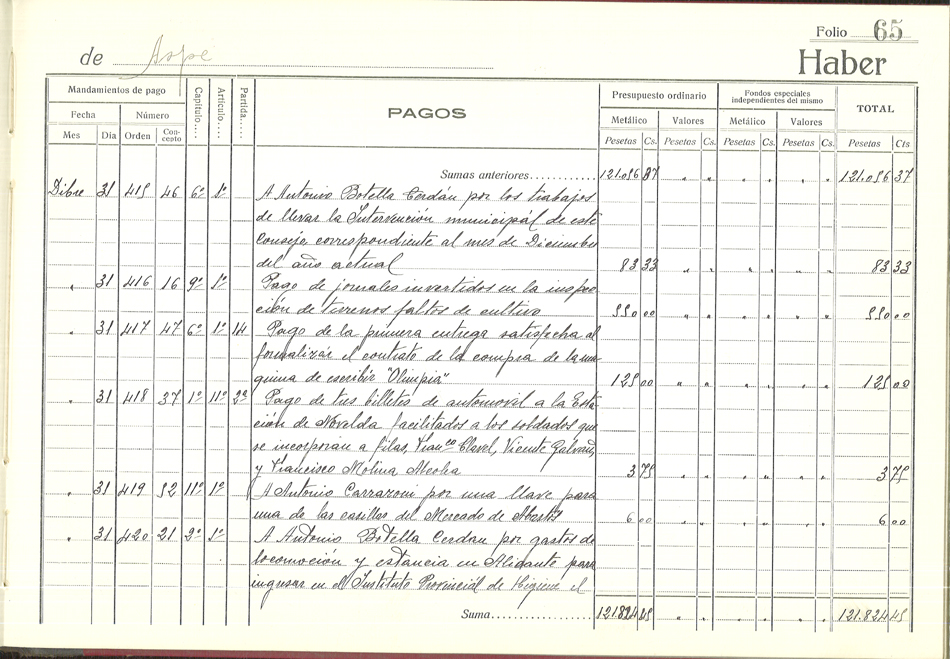 Folio 65
de Aspe
Haber
Mandamientos de pago
Capítulo....
Artículo....
Partida....
PAGOS
Presupuesto ordinario
Fondos especiales independientes del mismo
TOTAL
Fecha Número Metálico Valores Metálico Valores
Mes Día Orden Concepto Pesetas Cs. Pesetas Cs. Pesetas Cs. Pesetas Cs. Pesetas Cts
Sumas anteriores............ 121.056 37 " " " " " " 121.056 37
Dibre 31 415 46 6º 1º A Antonio Botella Cerdán por los trabajos
de llevar la Intervención municipál de este
Consejo correspondiente al mes de Diciembre
del año actual 83 33 " " " " " " 83 33
" 31 416 16 9º 1º Pago de jornales invertidos en la inspec-
ción de terrenos faltos de cultivo 550 00 " " " " " " 550 00
" 31 417 47 6º 1º 14 Pago de la primera entrega satisfecha al
formalizar el contrato de la compra de la má-
quina de escribir "Olimpia" 125 00 " " " " " " 125 00
" 31 418 37 1º 11º 2º Pago de tres billetes de automovil a la Esta-
ción de Novelda facilitados a los soldados que
se incorporan a filas, Franco Clavel, Vicente Galvañ,
y Francisco Molina Alcolea 3 75 " " " " " " 3 75
" 31 419 52 11º 1º A Antonio Carrazoni por una llave para
una de las casillas del Mercado de Abastos 6 00 " " " " " " 6 00
" 31 420 21 2º 1º A Antonio Botella Cerdan por gastos de
locomoción y estancia en Alicante para
ingresar en el Instituto Provincial de Higiene el
Suma........................ 121.824 45 " " " " " " 121.824 45